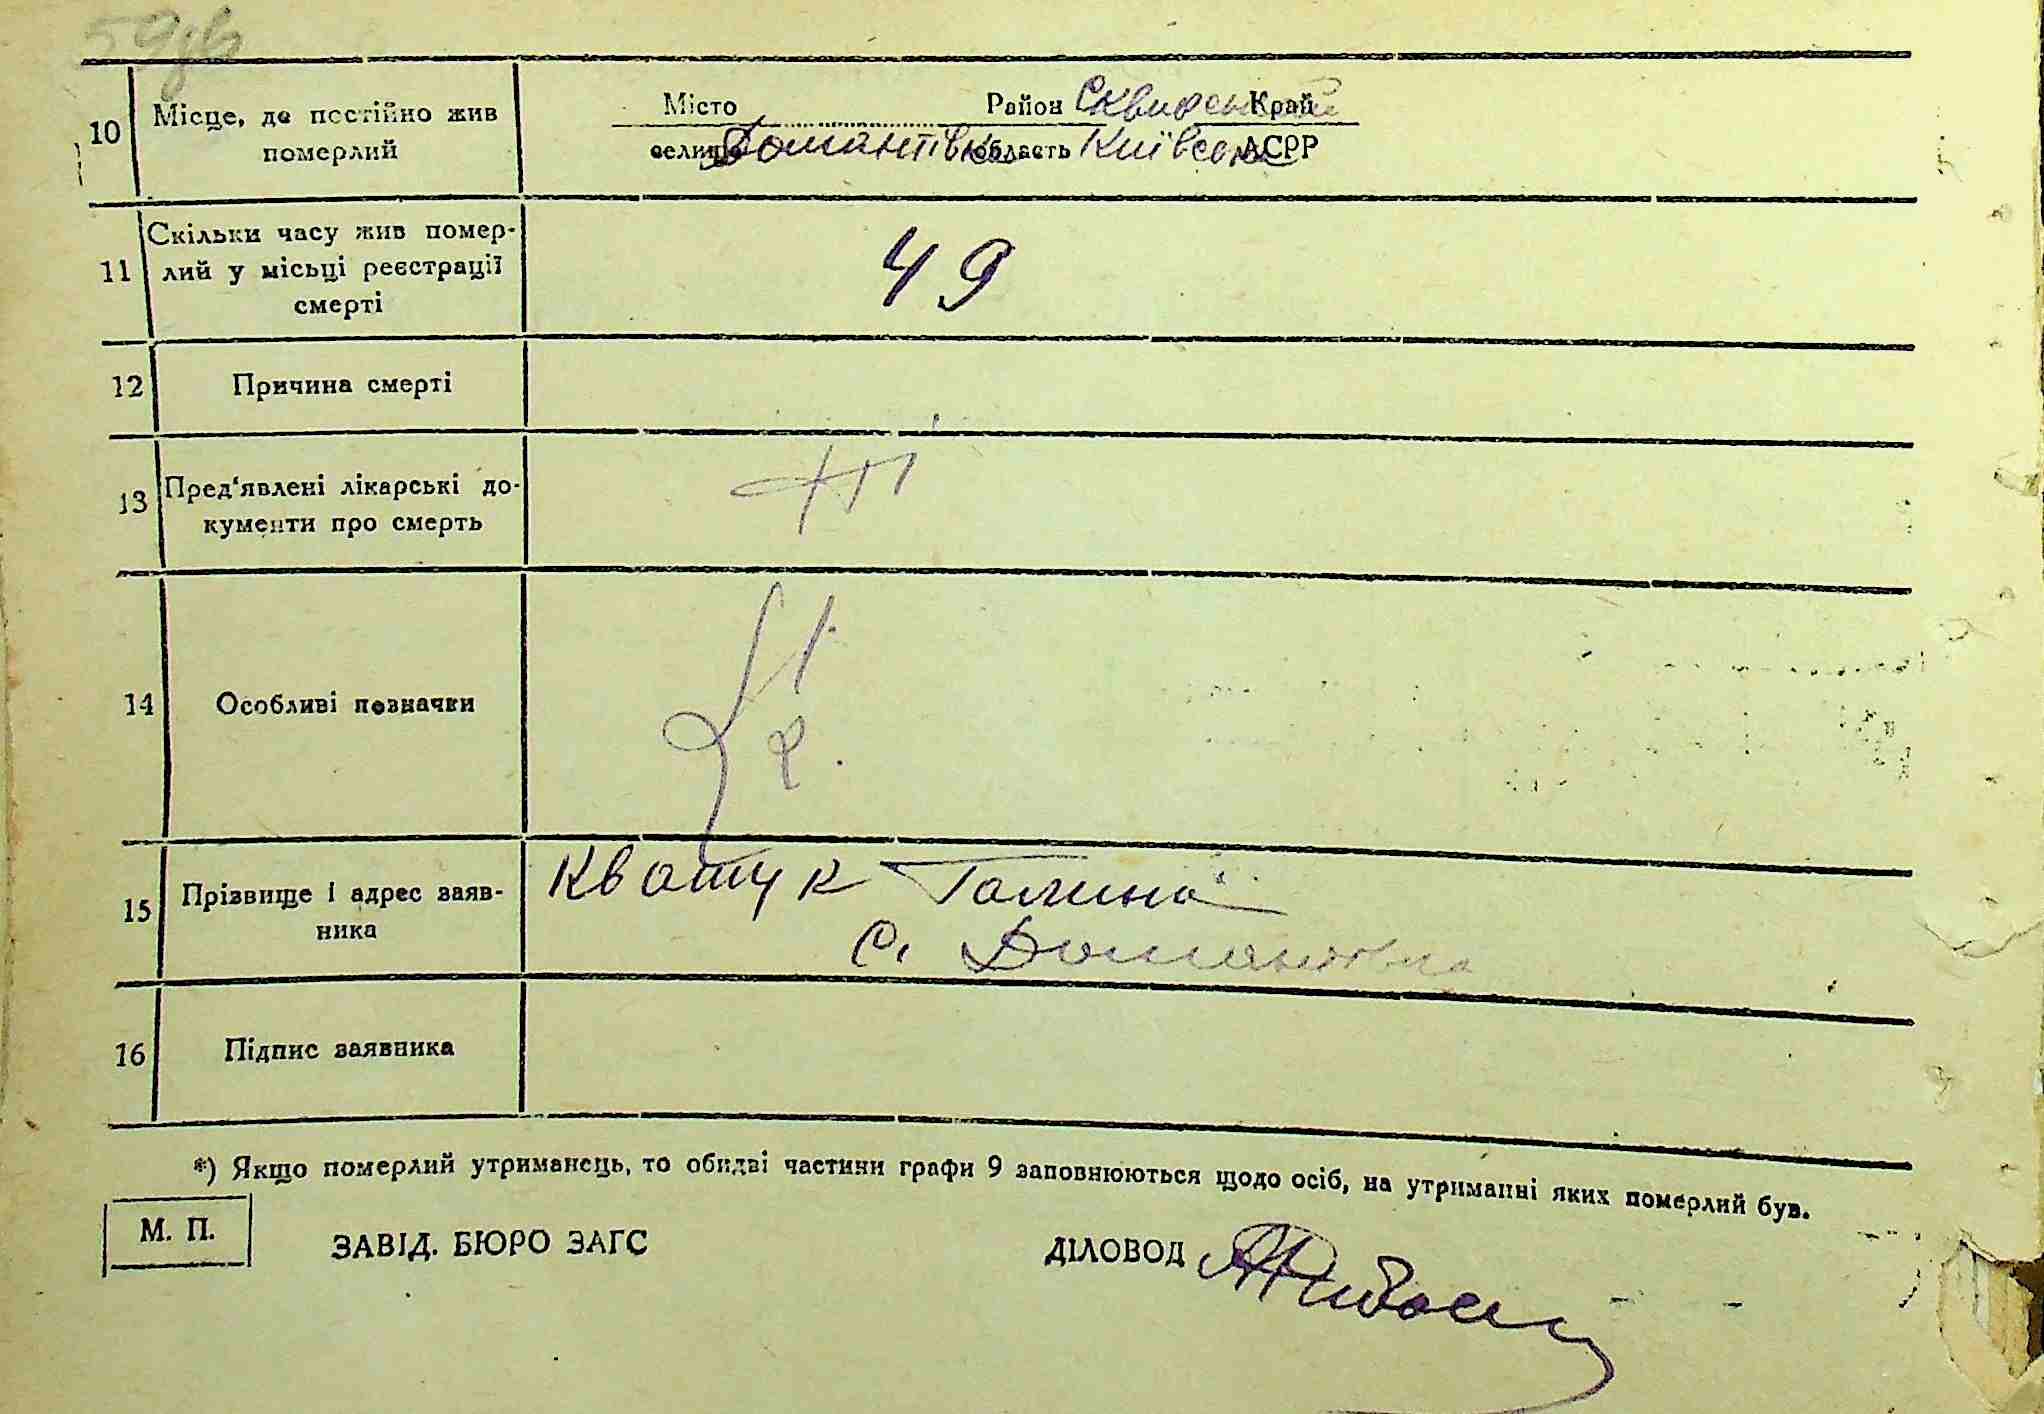 59зв
10 Місце, де постійно жив померлий
Місто Район Сквирський Край
селище Домантівка область Київська АСРР
11 Скільки часу жив помер-
лий у місьці реєстрації
смерті
49
12 Причина смерті
13 Пред'явлені лікарські до-
кументи про смерть
14 Особливі позначки
1.
2.
15 Прізвище і адрес заяв-
ника
Кватук Галина
с. Домантовка
16 Підпис заявника
*) Якщо померлий утриманець, то обидві частини графи 9 заповнюються щодо осіб, на утриманні яких померлий був.
М. П.
ЗАВІД. БЮРО ЗАГС
ДІЛОВОД